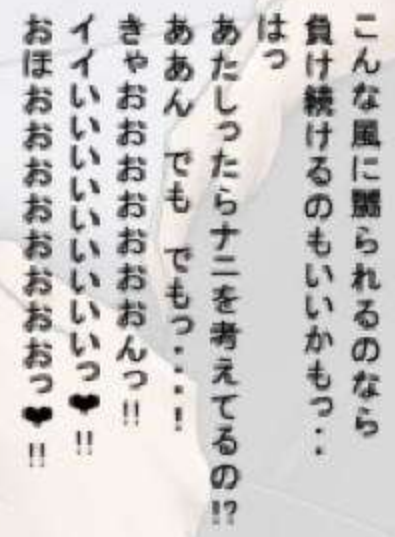 こんな風に嬲られるのなら
負け続けるのもいいかもっ・・
はっ
あたしったらナニを考えてるの!?
ああん でも でもっ・・・!
きゃおおおおおおんっ!!
イイいいいいいいいいっ❤!!
おほおおおおおおおおっ❤!!